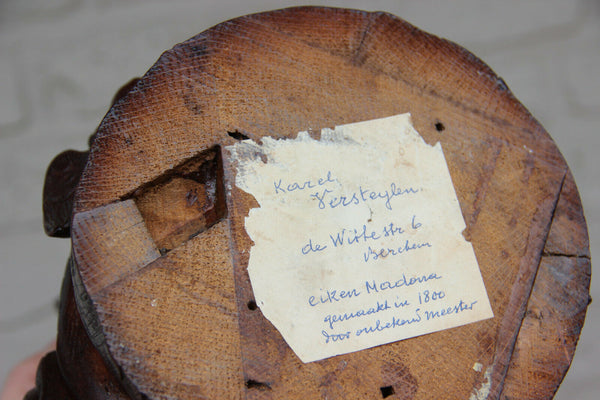 Karel
Versteylen
de Wittestr 6
Berchem
eiken Madona
gemaakt in 1800
dur onbekend meester